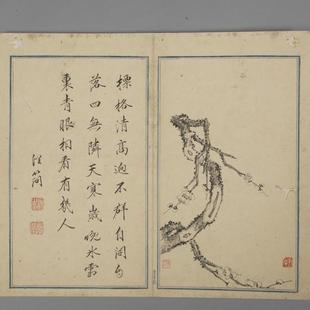 標格清高迥不群自開自
落四無隣天寒歲晚冰霜
裏青眼相看有幾人